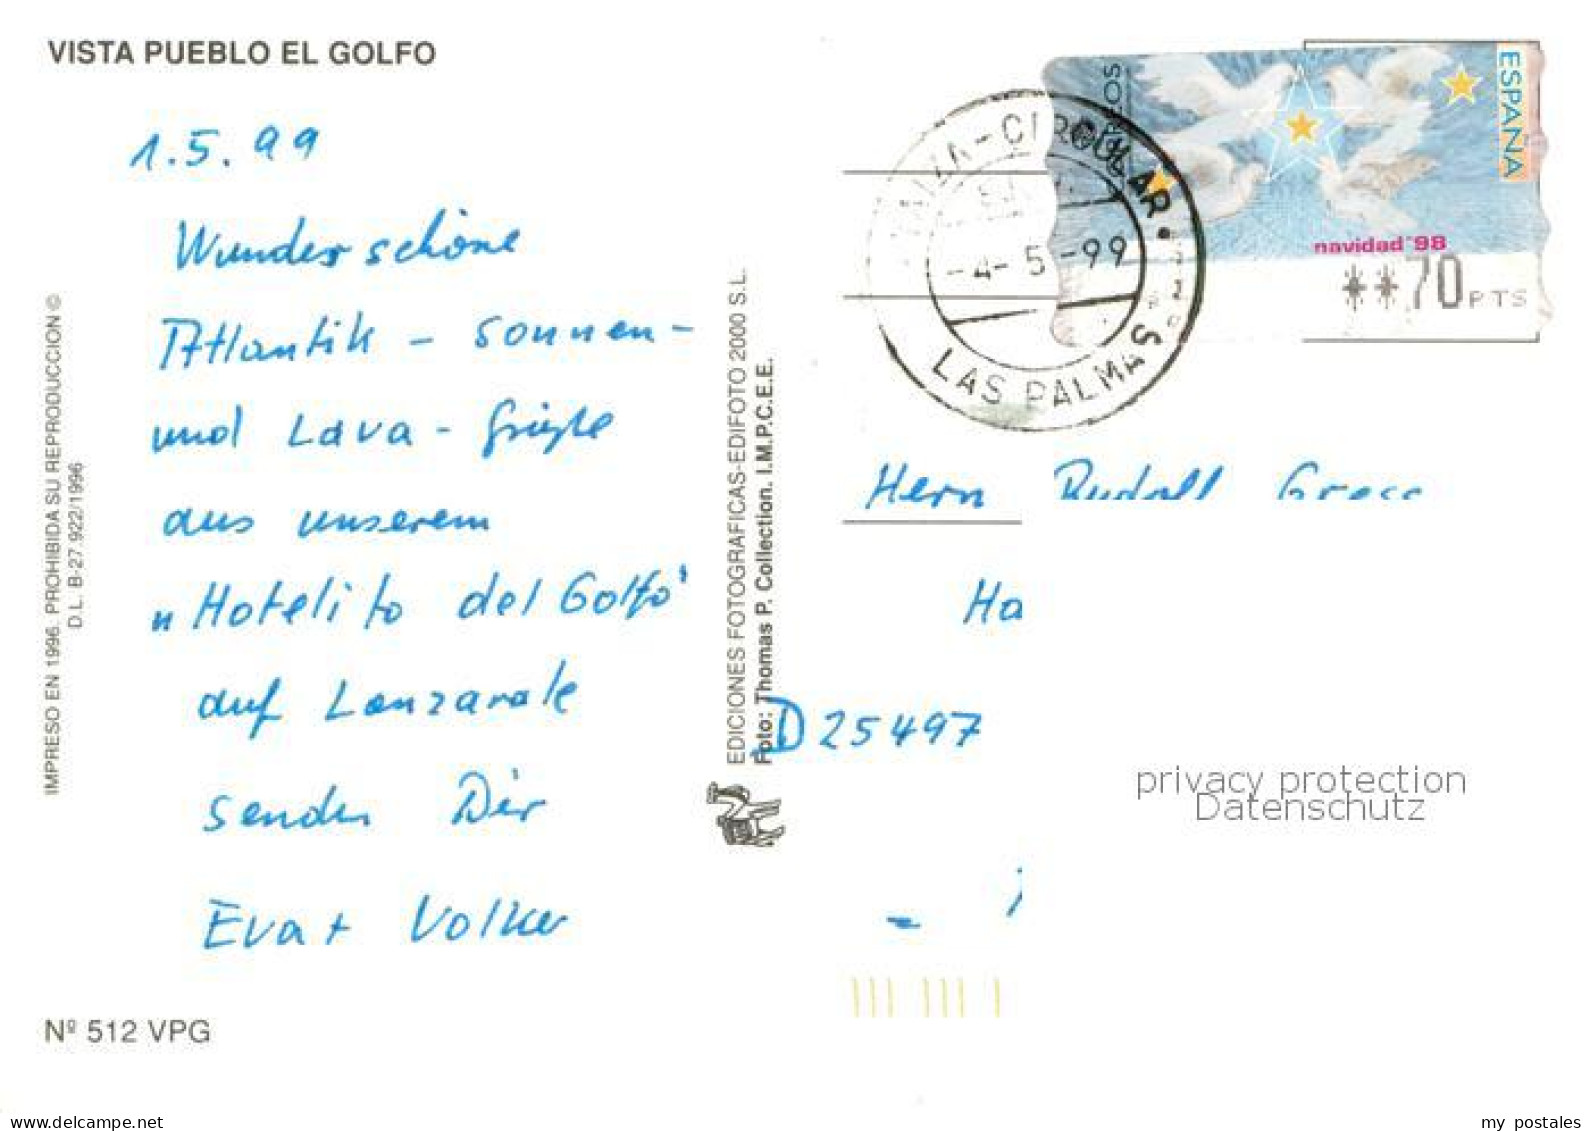 VISTA PUEBLO EL GOLFO
1.5.99
Wunderschöne
Atlantik - Sonnen-
und Lava - Grüße
aus unserem
„Hotelito del Golfo"
auf Lanzarote
senden Dir
Eva + Volker
Nº 512 VPG
IMPRESO EN 1996. PROHIBIDA SU REPRODUCCION ©
D.L. B-27.922/1996
EDICIONES FOTOGRAFICAS-EDIFOTO 2000 S.L.
Foto: Thomas P. Collection. I.M.P.C.E.E.
ESPAÑA
navidad '98
**70 PTS
-4-5-99
LAS PALMAS
Herrn Rudolf
Ha
D 25497
privacy protection
Datenschutz
my postales
www.delcampe.net